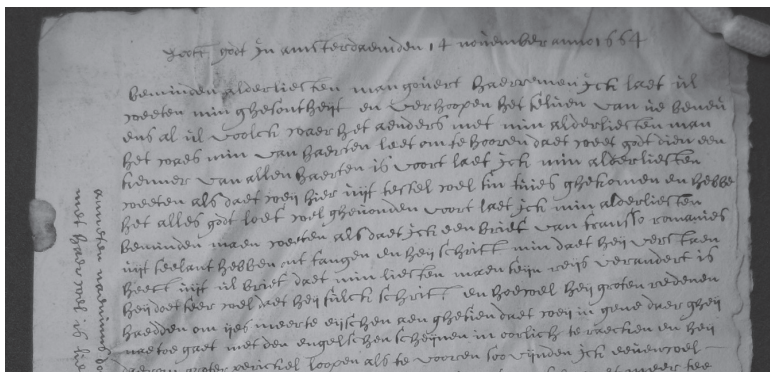 Looft godt in amsterdam den 14 november anno 1664
beminden alderliesten man govert haerremen ick laet ul
weeten min ghesontheijt en verhoopen het selven van ue beneven
ens al ul voolck waer het aenders met min alderliesten man
het waes min van haerten laet om te hooren daet weet godt dien een
kenner van allen haerten is voort laet ick min alderliesten
weeten als daet weij hier uijt teckel wel sin tuies ghekomen en hebbe
het alles godt loet wel ghevonden voort laet ick min alderliesten
beminden maen weeten als daet ick een brief van fransso romanies
uijt seelant hebben ontfangen en heij schrift min daet heij verstaen
heeft uijt ul brief daet min liesten maen seijn reijs verandert is
heij doet seer wel daet heij sulck schrift en hoewel heij groten redenen
haedden om ijes meerte eijschen aen ghesien daet weij in gene daer gheij
nae toe gaet met den engelschen scheijnen in oorlich te raecken en heij
groter perickel loopen als te vooren soo vijnden ick evenwel